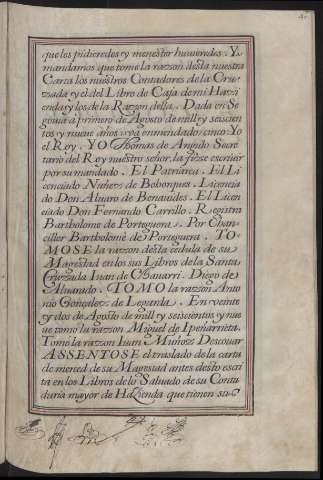 que les pidieredes y menester huuieredes. Y
mandamos que tome la razon desta nuestra
Carta los nuestros Contadores de la Cru-
zada y el del Libro de Caja de mi Hazi-
enda y los de la Razon della. Dada en Se-
gouia a primero de Agosto de mill y seiscien-
tos y nueue años enmendado cinco Yo
el Rey. YO Thomas de Angulo Secre
tario del Rey nuestro señor, la fize escriuir
por su mandado. El Patriarca. El Li
cenciado Nuñez de Bohorques. Licencia
do Don Aluaro de Benauides. El Licen
ciado Don Fernando Carrillo. Registra
Bartholome de Porteguera. Por Chan
ciller Bartholome de Porteguera. TO-
MOSE la razon desta cedula de su
Magestad en los sus Libros de la Santa
Cruzada Iuan de Chauarri. Diego de
Aluarado. TOMO la razon Anto
nio Gonçalez de Legarda. En veinte
y dos de Agosto de mill y seiscientos y nue
ue tomo la razon Miguel de Ipeñarrieta.
Tome la razon Iuan Muñoz Descouar
ASSENTOSE el traslado de la carta
de merced de su Magestad antes desto escri
ta en los Libros de lo Saluado de su Conta
duria mayor de Hazienda que tienen sus